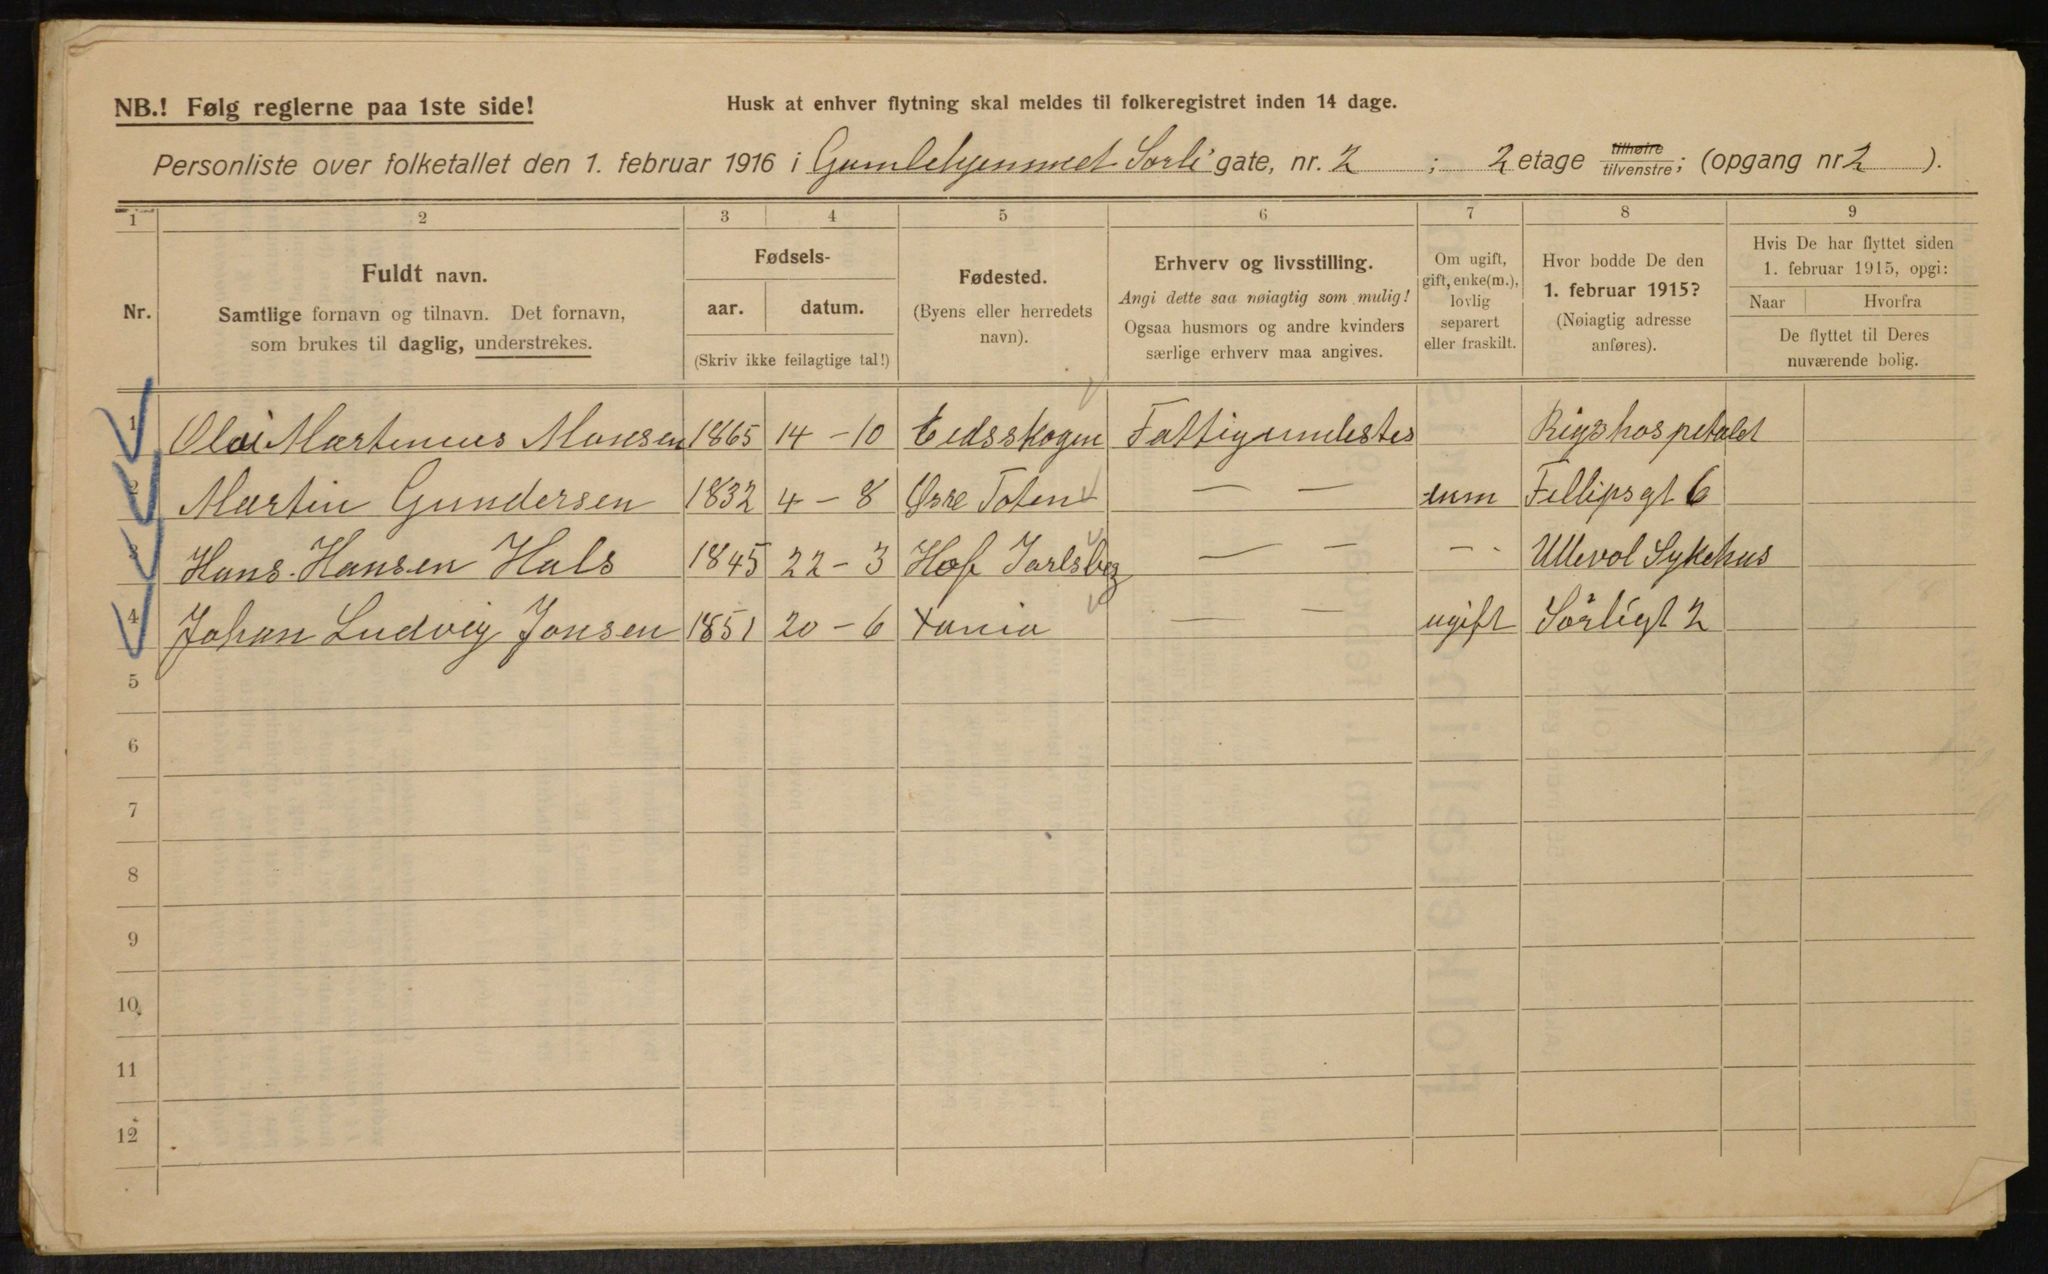 NB.! Følg reglerne paa 1ste side!
Husk at enhver flytning skal meldes til folkeregistret inden 14 dage.
Personliste over folketallet den 1. februar 1916 i Gamlehjemmet Sorli gate, nr. 2 ; 2 etage tilhøire tilvenstre; (opgang nr 2 ).
1 2 3 4 5 6 7 8 9
Nr.
Fuldt navn.
Samtlige fornavn og tilnavn. Det fornavn,
som brukes til daglig, understrekes.
Fødsels-
aar. datum.
(Skriv ikke feilagtige tal!)
Fødested.
(Byens eller herredets
navn).
Erhverv og livsstilling.
Angi dette saa nøiagtig som mulig!
Ogsaa husmors og andre kvinders
særlige erhverv maa angives.
Om ugift,
gift, enke(m.),
lovlig
separert
eller fraskilt.
Hvor bodde De den
1. februar 1915?
(Nøiagtig adresse
anføres).
Hvis De har flyttet siden
1. februar 1915, opgi:
Naar Hvorfra
De flyttet til Deres
nuværende bolig.
1 Olai Martinius Monsen 1865 14 - 10 Eidsskogen Fattigundestøs Rigshospetalet
2 Martin Gundersen 1832 4 - 8 Øsre Toten — — enm Fillipsgt 6
3 Hans. Hansen Hals 1845 22 - 3 Hof Jarlsberg — — - - Ullevol Sykehus
4 Johan Ludvig Jonsen 1851 20 - 6 Xania — — ugift Sörligt 2
5
6
7
8
9
10
11
12